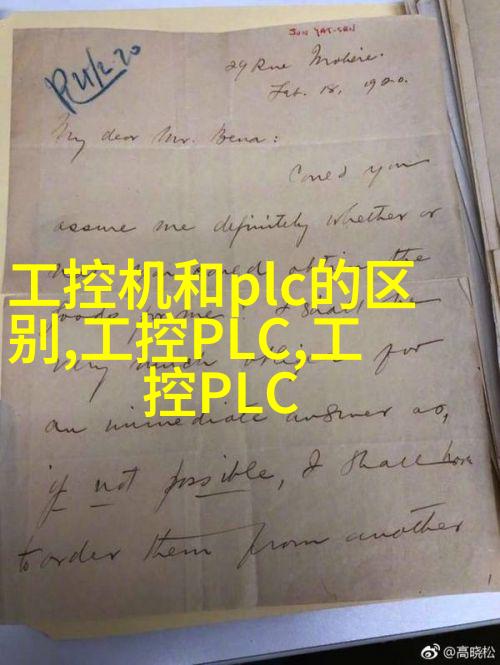 SUN YAT-SEN
R 21/2.20
29 Rue Molière.
Feb. 18, 1920.
My dear Mr. Bena:
Could you
assure me definitely whether or
not obtain the
goods for me? I shall be
very much for
an immediate answer as,
if not possible, I shall have
to order them from another
工控机和plc的区
别,工控PLC,工
控PLC
@高晓松